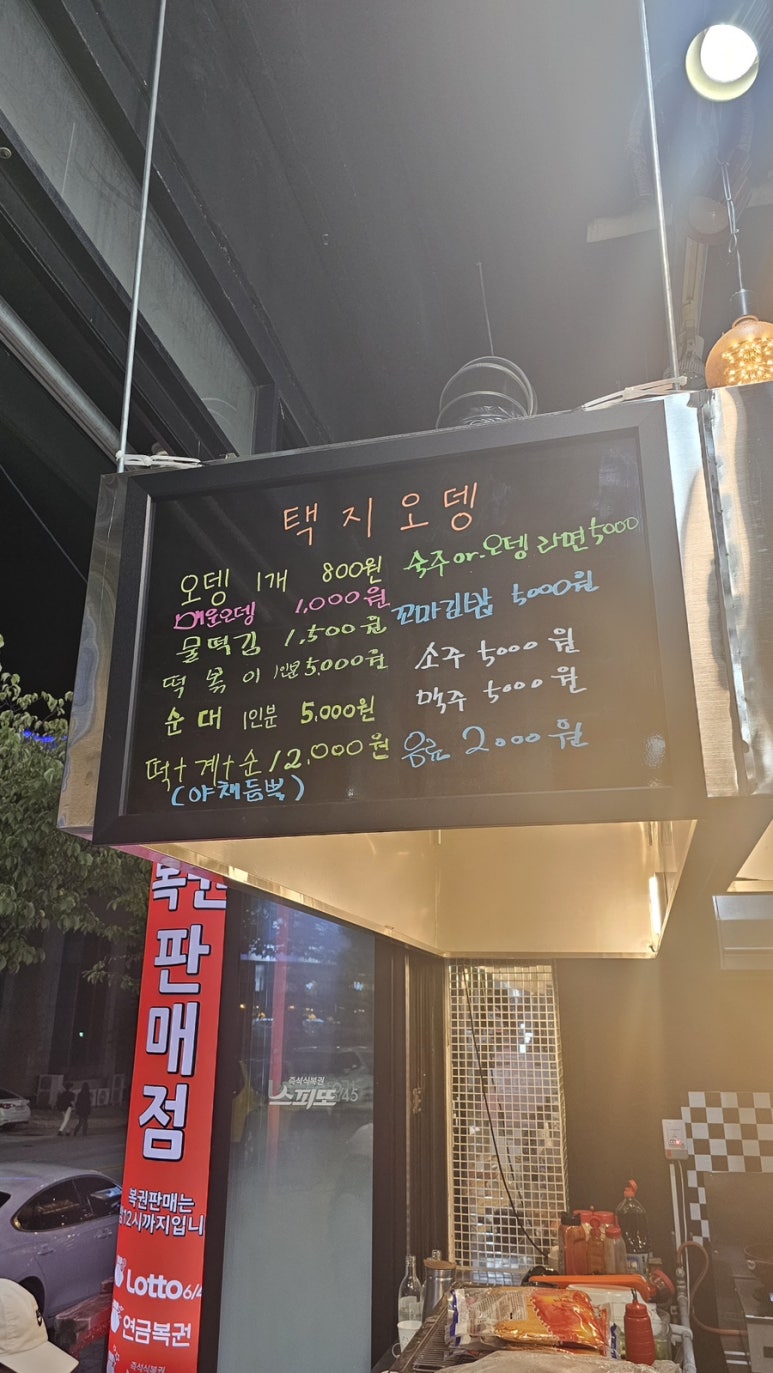 택지오뎅
오뎅 1개 800원
매운오뎅 1,000원
물떡김 1,500원
떡볶이 1인분 5,000원
순대 1인분 5,000원
떡+계+순 12,000원
(야채듬뿍)
숙주or.오뎅라면 5000
꼬마김밥 5000원
소주 5000원
맥주 5000원
음료 2000원
복권
판매점
복권판매는
12시까지입니
Lotto 6/4
연금복권
즉석식복권
즉석식복권
스피또